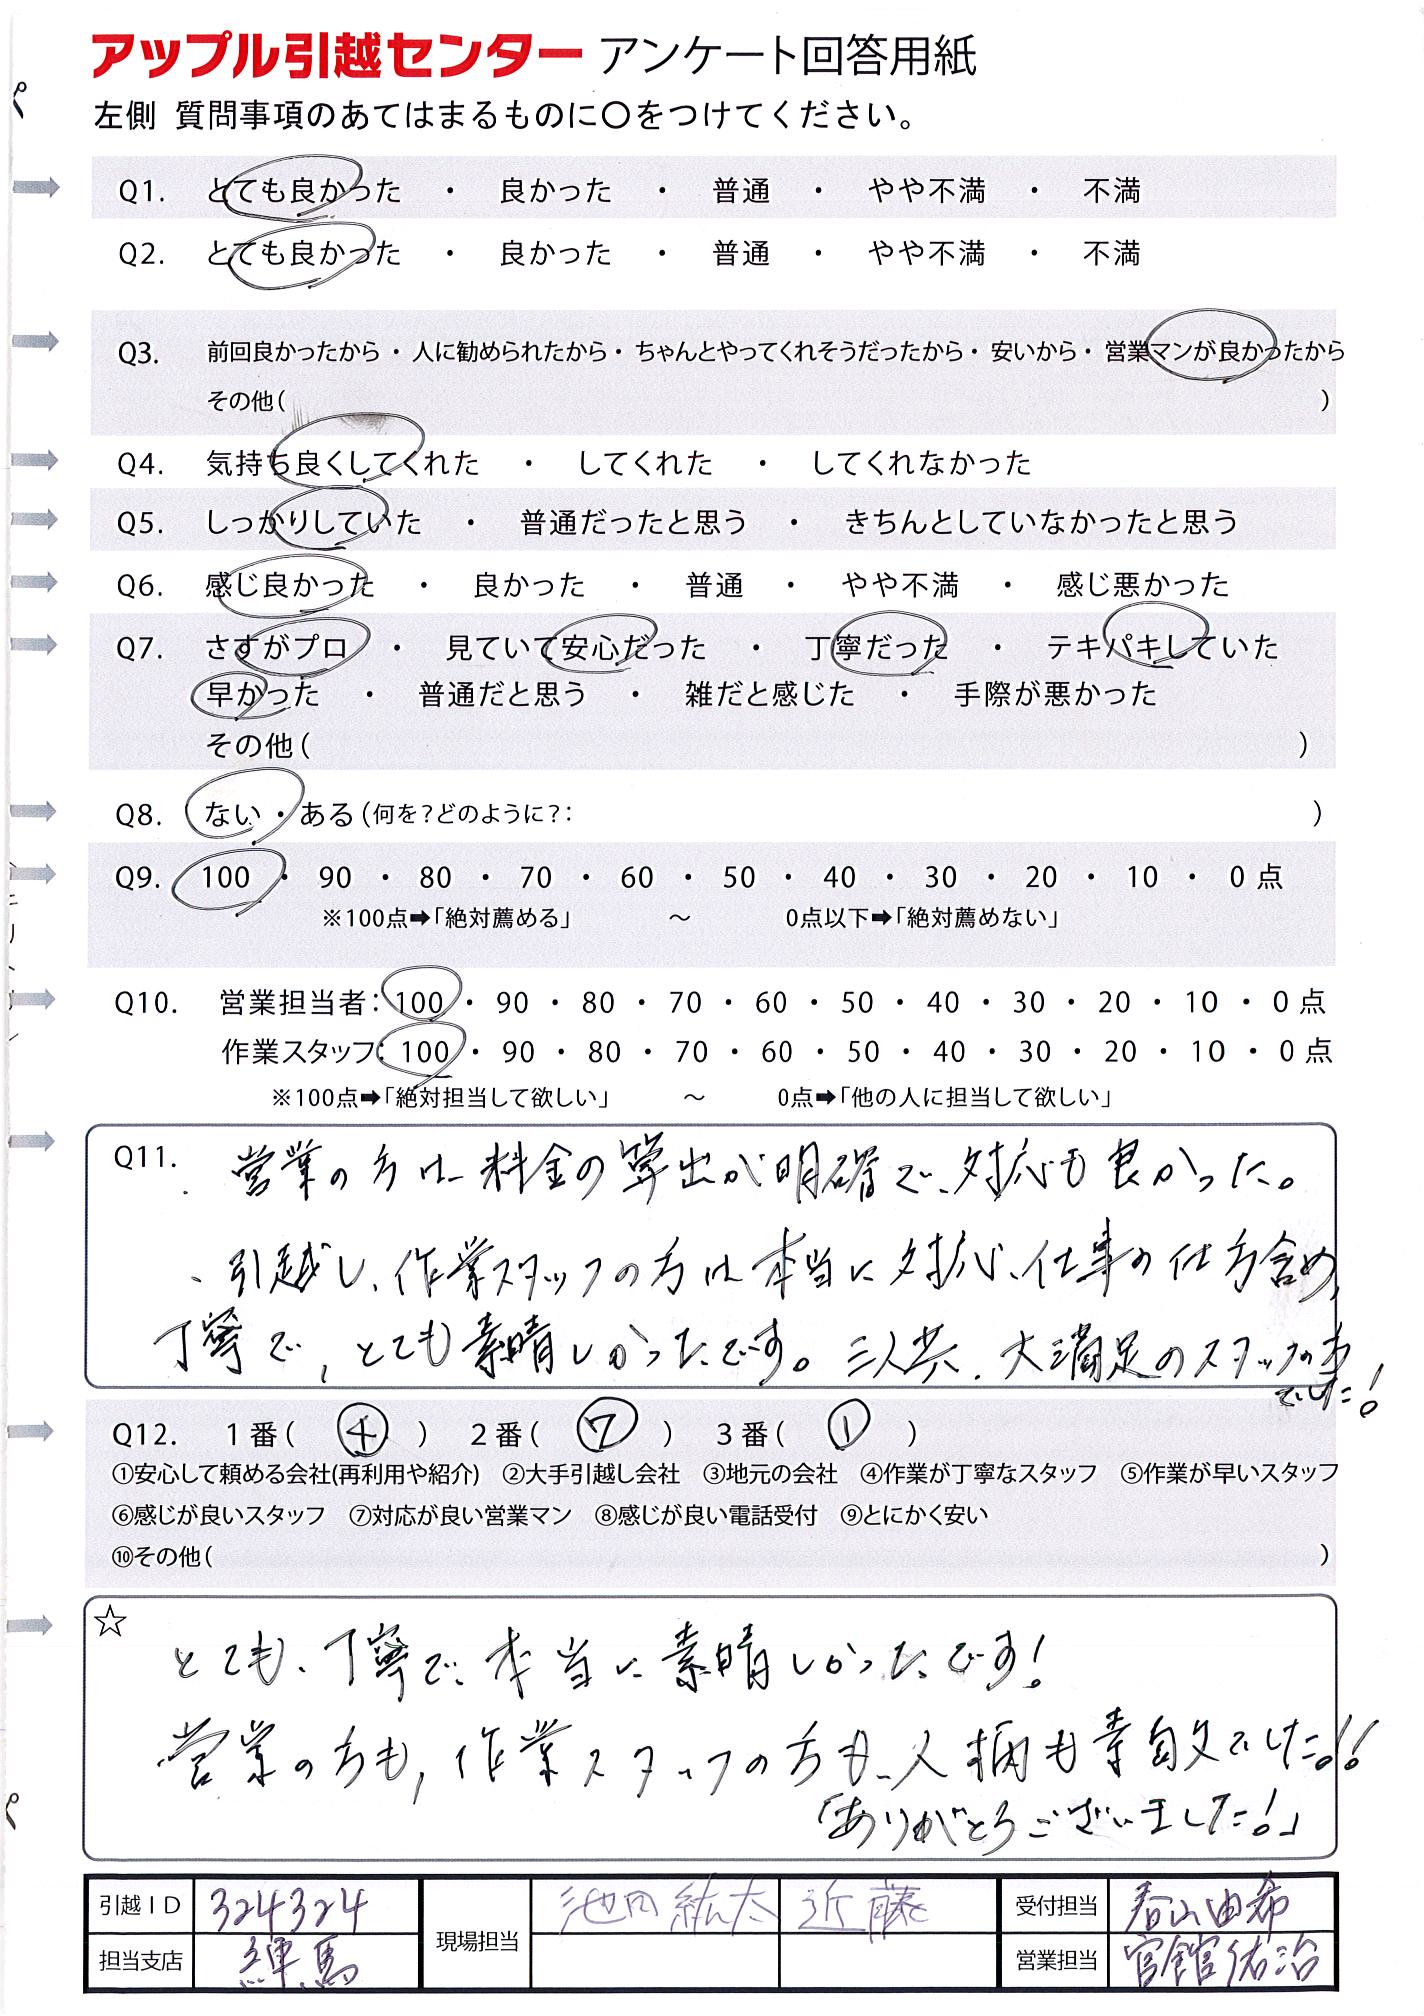 アップル引越センター アンケート回答用紙
左側 質問事項のあてはまるものに〇をつけてください。
Q1. とても良かった ・ 良かった ・ 普通 ・ やや不満 ・ 不満
Q2. とても良かった ・ 良かった ・ 普通 ・ やや不満 ・ 不満
Q3. 前回良かったから ・ 人に勧められたから ・ ちゃんとやってくれそうだったから ・ 安いから ・ 営業マンが良かったから
その他( )
Q4. 気持ち良くしてくれた ・ してくれた ・ してくれなかった
Q5. しっかりしていた ・ 普通だったと思う ・ きちんとしていなかったと思う
Q6. 感じ良かった ・ 良かった ・ 普通 ・ やや不満 ・ 感じ悪かった
Q7. さすがプロ ・ 見ていて安心だった ・ 丁寧だった ・ テキパキしていた
早かった ・ 普通だと思う ・ 雑だと感じた ・ 手際が悪かった
その他( )
Q8. ない ・ ある(何を?どのように?: )
Q9. 100 ・ 90 ・ 80 ・ 70 ・ 60 ・ 50 ・ 40 ・ 30 ・ 20 ・ 10 ・ 0 点
※100点➡「絶対薦める」 ～ 0点以下➡「絶対薦めない」
Q10. 営業担当者: 100 ・ 90 ・ 80 ・ 70 ・ 60 ・ 50 ・ 40 ・ 30 ・ 20 ・ 10 ・ 0 点
作業スタッフ: 100 ・ 90 ・ 80 ・ 70 ・ 60 ・ 50 ・ 40 ・ 30 ・ 20 ・ 10 ・ 0 点
※100点➡「絶対担当して欲しい」 ～ 0点➡「他の人に担当して欲しい」
Q11. 営業の方は、料金の算出が明確で、対応も良かった。
、引越し、作業スタッフの方は本当に対応、仕事の仕方含め、
丁寧で、とても素晴しかったです。三人共、大満足のスタッフの方
でした!
Q12. 1番( ④ ) 2番( ⑦ ) 3番( ① )
①安心して頼める会社(再利用や紹介) ②大手引越し会社 ③地元の会社 ④作業が丁寧なスタッフ ⑤作業が早いスタッフ
⑥感じが良いスタッフ ⑦対応が良い営業マン ⑧感じが良い電話受付 ⑨とにかく安い
⑩その他( )
☆
とても、丁寧で、本当に素晴しかったです!
営業の方も、作業スタッフの方も、人柄も素敵でした!!
「ありがとうございました!」
引越ID 324324 現場担当 池田紘太 近藤 受付担当 春山由希
担当支店 練馬 営業担当 官舘佑治